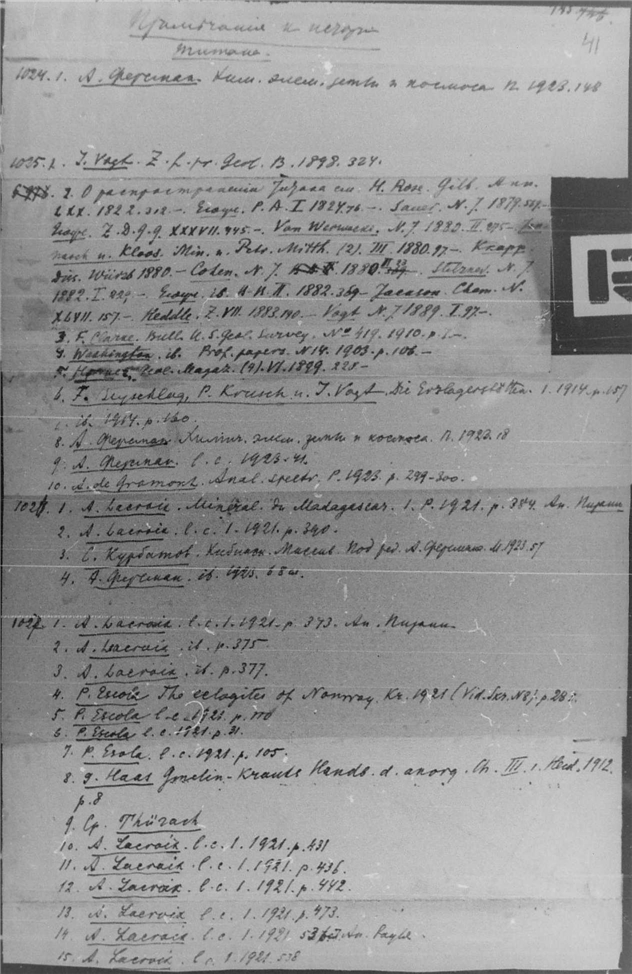 Примечания к
титана.
41
1024. 1. А. Ферсман. Хим. элем. земли и космоса П. 1923. 148
1025. 1. J. Vogt. Z. f. pr. Geol. B. 1898. 324.
2. О распространении титана см. H. Rose. Gilb. Ann.
LXX. 1822. 312.— P. A. I 1824.76.— Sauer. N. J. 1879.
Z. D. g. G. XXXVII. 445.— Van Werveke, N. J. 1880. II. 275.—
u. Kloos. Min. u. Petr. Mitth. (2). III. 1880. 97.— Knapp.
Würzb 1880.— Cohen. N. J. 1880.— Stelzner. N. J.
1882. I. 229.— ib. II. 1882. 369— Jackson. Chem. N.
XLVII. 157.— Heddle. Z. VII. 1883.190.— Vogt N. J 1889. I. 97.—
3. F. Clarke. Bull. U. S. Geol. Survey. No 419. 1910. p.
4. Washington, ib. Prof. papers. N 14. 1903. p. 106.—
5. Geol. Magaz. (4). VI. 1899. 225—
6. F. Beyschlag, P. Krusch u. J. Vogt. Die Erzlagerstätten. 1. 1914. p. 157
ib. 1914. p. 160.
8. А. Ферсман Химич. элем. земли и космоса. П. 1923. 18
9. А. Ферсман. l. c. 1923. 41.
10. A. de Gramont. Anal. spectr. P. 1923. p. 299-300.
1. A. Lacroix. Minéral. de Madagascar. 1. P. 1921. p. 384.
2. A. Lacroix. l. c. 1. 1921. p. 390.
3. Курбатов. Хибинск. Массив. Под ред. А. Ферсмана. 1923. 57
4. А. Ферсман. ib. 1923. 68
1. A. Lacroix. l. c. 1. 1921. p. 373.
2. A. Lacroix, ib. p. 375.
3. A. Lacroix, ib. p. 377.
4. P. Escola The eclogites of Norway. Kr. 1921 (Vid. Skr. N8). p. 28
5. P. Escola l. c. 1921. p.
6. P. Escola l. c. 1921. p. 31.
7. P. Esola. l. c. 1921. p. 105.
8. Haas Gmelin-Krauts Handb. d. anorg. Ch. III. 1. Heid. 1912.
p. 8
9. Ср. Thürach
10. A. Lacroix. l. c. 1. 1921. p. 431
11. A. Lacroix. l. c. 1. 1921. p. 436.
12. A. Lacroix. l. c. 1. 1921. p. 442.
13. A. Lacroix l. c. 1. 1921. p. 473.
14. A. Lacroix l. c. 1. 1921.
15. A. Lacroix l. c. 1. 1921. 538